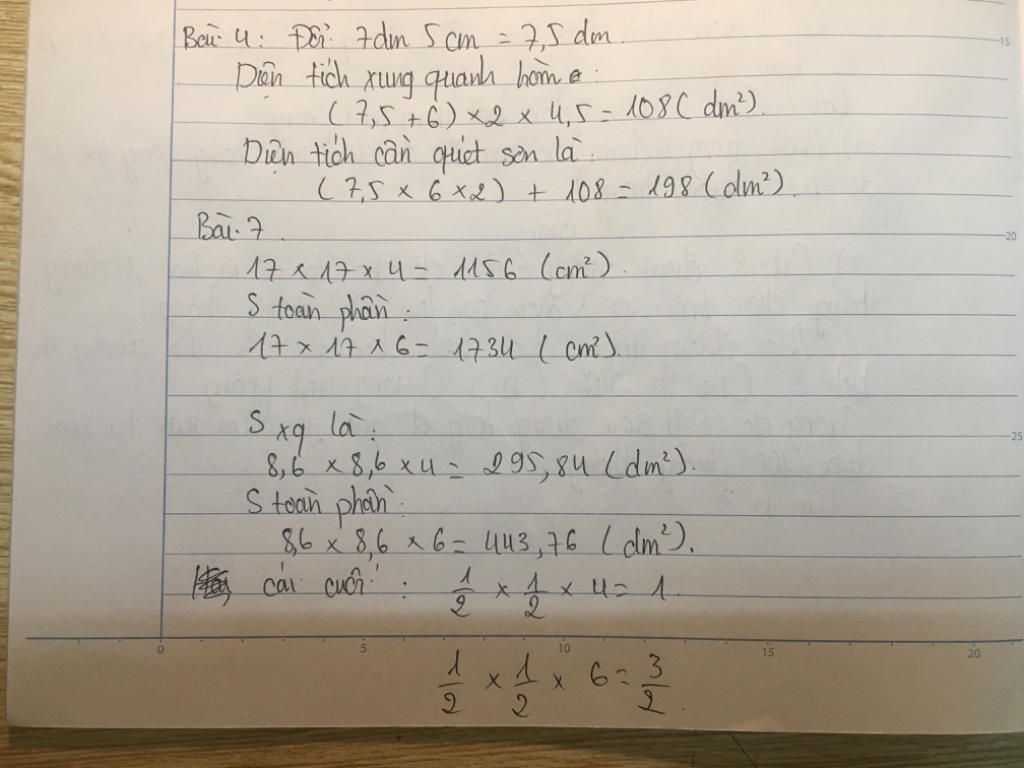 Bài 4: Đổi 7dm 5cm = 7,5 dm.
Diện tích xung quanh hòm
(7,5 + 6) × 2 × 4,5 = 108 (dm²).
Diện tích cần quét sơn là:
(7,5 × 6 × 2) + 108 = 198 (dm²).
Bài 7
17 × 17 × 4 = 1156 (cm²).
S toàn phần:
17 × 17 × 6 = 1734 (cm²).
S xq là:
8,6 × 8,6 × 4 = 295,84 (dm²).
S toàn phần:
8,6 × 8,6 × 6 = 443,76 (dm²).
cái cuối: 1/2 × 1/2 × 4 = 1.
1/2 × 1/2 × 6 = 3/2.
15
20
25
0 5 10 15 20